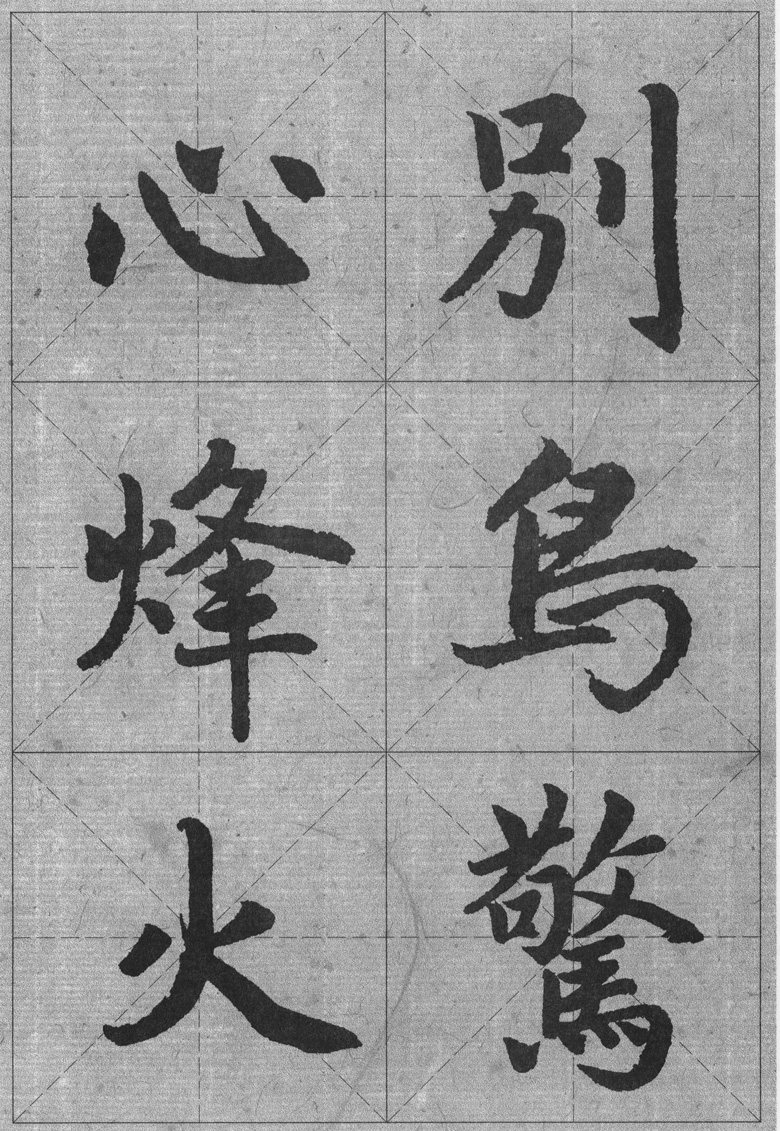 別鳥驚
心烽火